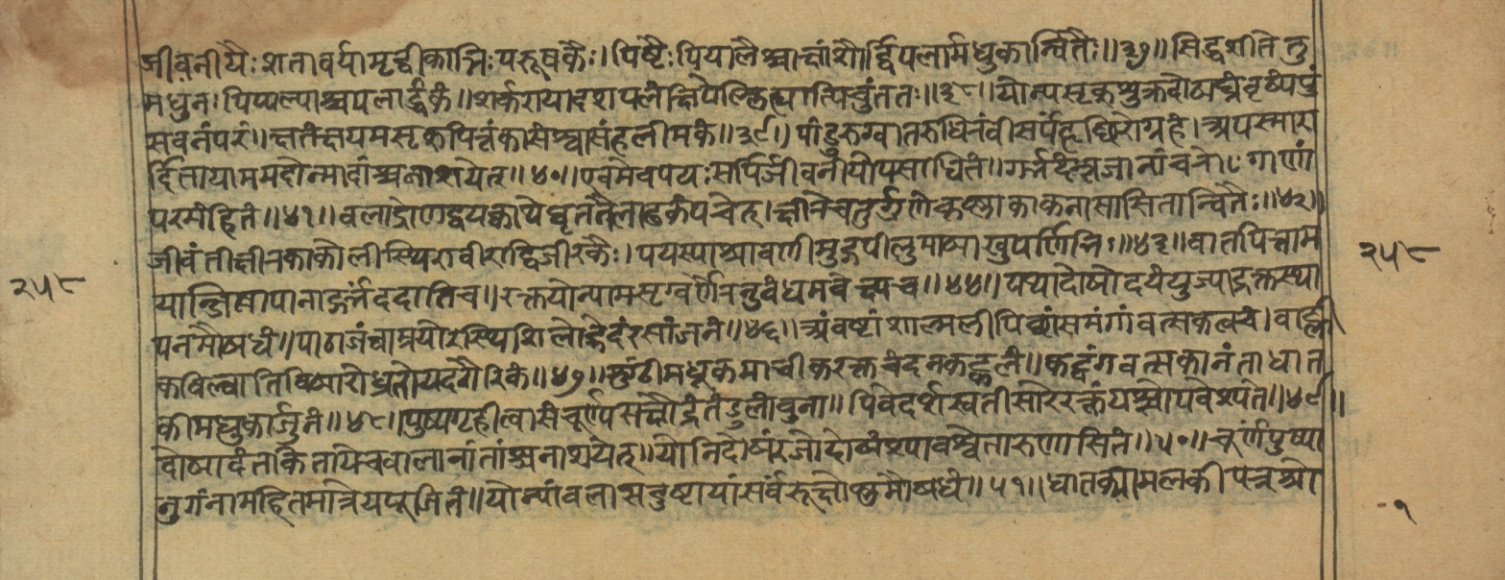 जीवनीयैः शतावर्या मृद्वीकाभिः परूषकैः। पिष्टैः पियालैश्चाक्षांशौर्द्विपलार्मधुकान्वितैः॥३७॥ सिद्धशीते तु
मधुनः पिप्पल्याश्चपलाष्टकं॥ शर्करायादशपलंक्षिपेल्लिह्यात्पिचुंततः॥३८॥ योन्यसृक्शुक्रदोषघ्नंवृष्यंपुं
सवनंपरं॥ क्षतंक्षयमसृक्पित्तंकासंश्वासंहलीमकं॥३९॥ पांडुरुग्वातरुधिरंवीसर्पंहृछिरोग्रहं। अपस्मारा
र्दितायाममदोन्मादांश्चनाशयेत्॥४०॥ एवमेवपयःसर्पिर्जीवनीयोपसाधितं॥ गर्भदंस्त्रजानांचरोगाणां
परमंहितं॥४१॥ बलाद्रोणद्वयक्वाथेघृततैलाढकंपचेत्। क्षीरेचतुर्गुणेकृष्णाकाकनासासितान्वितैः॥४२॥
जीवंतीक्षीरकाकोलीस्थिरावीरार्द्धिजीरकैः। पयस्याश्रावणीमुद्गपीलुमाषाखुपर्णिभिः॥४३॥ वातपित्ताम
यान्जिषापानाद्गर्भंददातिच॥ रक्तयोन्यामसृग्वर्णैरनुबंधमवेक्ष्यच॥४४॥ यथादोषोदयंयुज्याद्रक्तस्था
पनमौषधं॥ पाठाजंब्वाम्रयोरस्थिशिलोद्भेदंरसांजनं॥४६॥ अंबष्टांशाल्मलीपिच्छांसमंगांवत्सकत्वचं। वाह्ली
कबिल्वातिविषारोध्रतोयदगैरिकं॥४७॥ सुंठीमधूकमाचीकरक्तचंदनकट्फलं॥ कट्वंगवत्सकानंताधात
कीमधुकार्जुनं॥४८॥ पुष्यगृहीत्वासंचूर्ण्यसक्षौद्रंतंडुलांबुना॥ पिबेदर्शस्वतीसारेरक्तंयश्चोपवेश्यते॥४९॥
दोषादंतकितयेचबालानांतांश्चनाशयेत्॥ योनिदोषंरजोदोषंश्यावश्वेतारुणासितं॥५०॥ चूर्णंपुष्या
नुगंनामहितमात्रेयपूजितं॥ योन्यांबलासदुष्टायांसर्वंरूक्षोष्णमौषधं॥५१॥ धातक्यामलकीपत्रस्रो
२५८
२५८
१